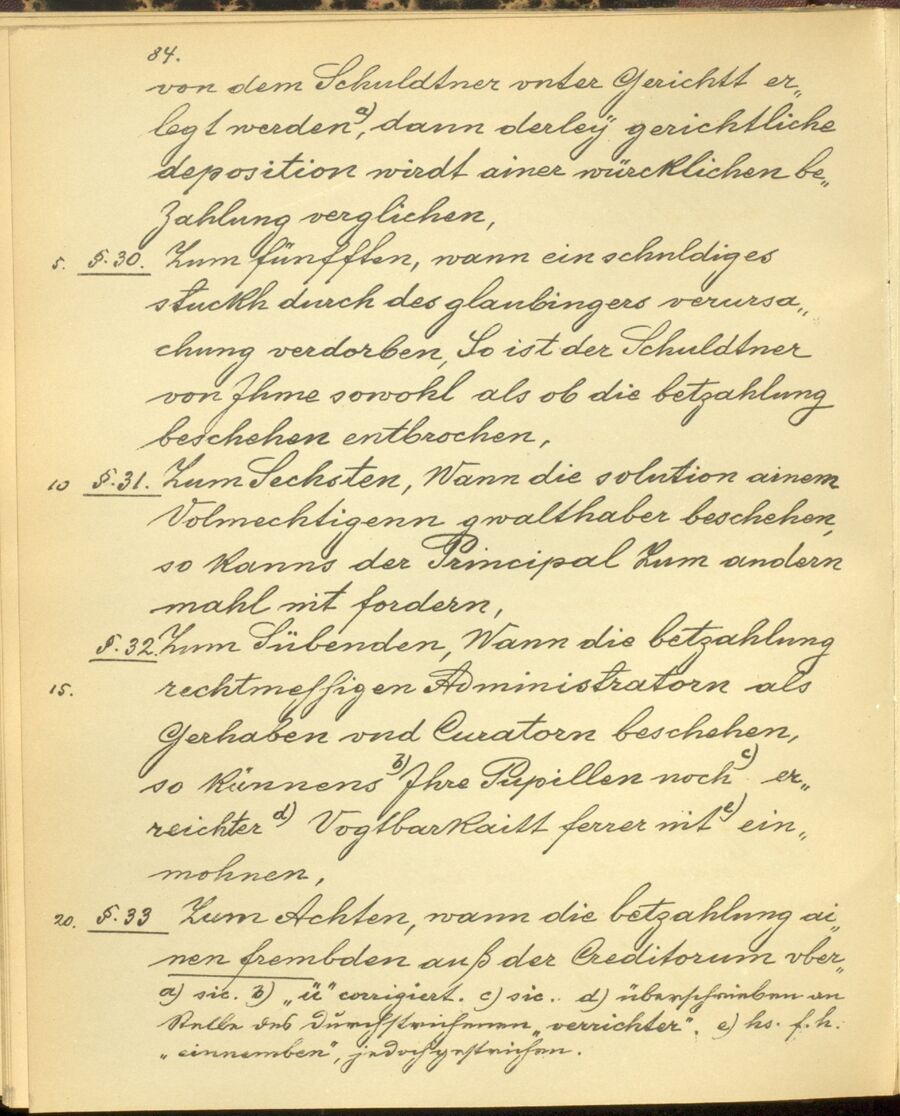 84.
von dem Schuldtner vnter Gerichtt er„
legt werden a), dann derleÿ gerichtliche
deposition wirdt ainer würcklichen be„
Zahlung verglichen,
5. §. 30. Zum fünfften, wann ein schuldiges
stuckh durch des glaubingers verursa„
chung verdorben, So ist der Schuldtner
von Ihme sowohl als ob die betzahlung
beschehen entbrochen,
10 §. 31. Zum Sechsten, Wann die solution ainem
Volmechtigenn gwalthaber beschehen,
so kanns der Principal Zum andern
mahl nit fordern,
§. 32. Zum Sübenden, Wann die betzahlung
15. rechtmessigen Administratorn als
Gerhaben vnd Curatorn beschehen,
so künnens b) Ihre Pupillen noch c) er„
reichter d) Vogtbarkaitt ferrer nit e) ein„
mohnen,
20. §. 33 Zum Achten, wann die betzahlung ai„
nen frembden auß der Creditorum vber„
a) sic. b) „ü" corrigiert. c) sic. d) überschrieben an
Stelle des Durchstrichenen „verrichter". e) hs. f. h.
„einnemben", jedoch gestrichen.